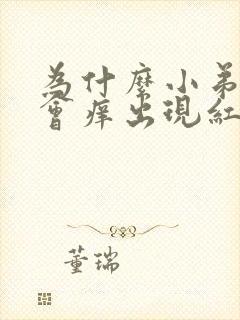 為什麼小弟
會痒出現紅
董瑞